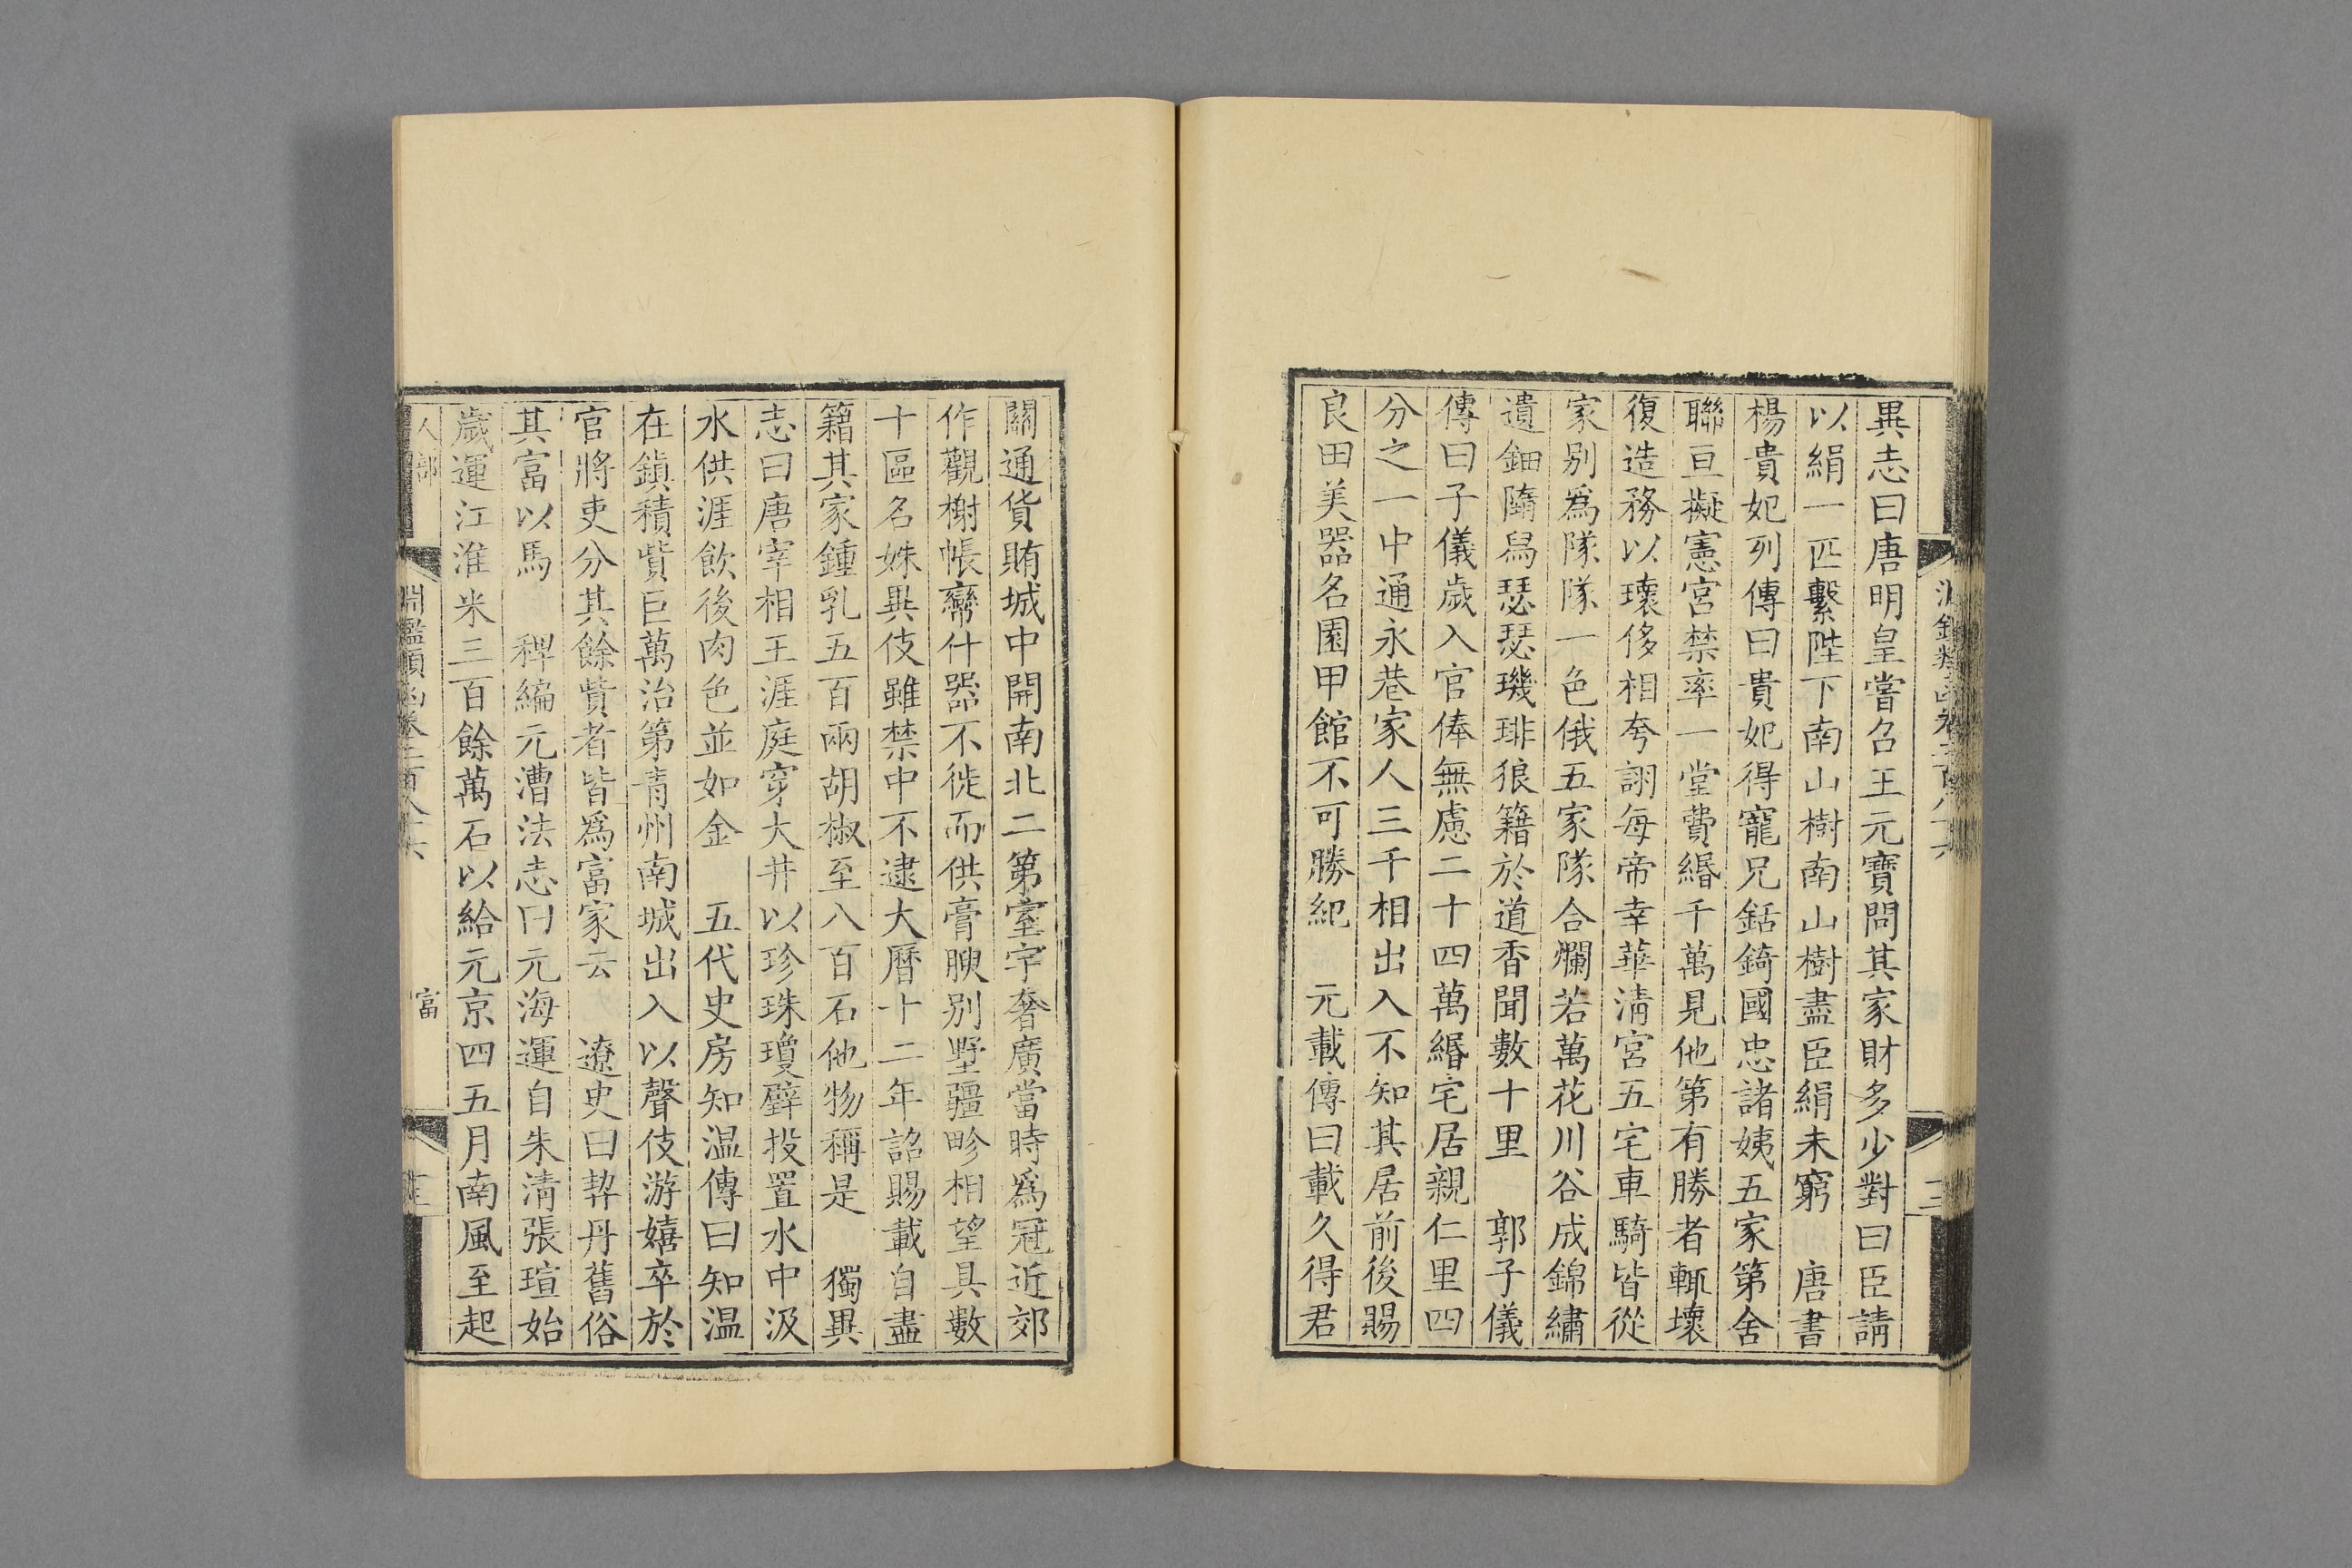 異志曰唐明皇嘗召王元寶問其家財多少對曰臣請
以絹一匹繫陛下南山樹南山樹盡臣絹未窮　唐書
楊貴妃列傳曰貴妃得寵兄銛錡國忠諸姨五家第舍
聯亘擬憲宮禁率一堂費緡千萬見他第有勝者輒壞
復造務以瓌侈相夸詡每帝幸華淸宮五宅車騎皆從
家别爲隊隊一色俄五家隊合爛若萬花川谷成錦繡
遺鈿墮舄瑟瑟璣琲狼籍於道香聞數十里　郭子儀
傳曰子儀歲入官俸無慮二十四萬緡宅居親仁里四
分之一中通永巷家人三千相出入不知其居前後賜
良田美器名園甲館不可勝紀　元載傳曰載久得君
關通貨賄城中開南北二第室宇奢廣當時爲冠近郊
作觀榭帳帟什器不徙而供膏腴别墅疆畛相望具數
十區名姝異伎雖禁中不逮大曆十二年詔賜載自盡
籍其家鍾乳五百兩胡椒至八百石他物稱是　獨異
志曰唐宰相王涯庭穿大井以珍珠瓊璧投置水中汲
水供涯飲後肉色並如金　五代史房知温傳曰知温
在鎭積貲巨萬治第靑州南城出入以聲伎游嬉卒於
官將吏分其餘貲者皆爲富家云　遼史曰契丹舊俗
其富以馬　稗編元漕法志曰元海運自朱淸張瑄始
歲運江淮米三百餘萬石以給元京四五月南風至起
人部　淵鑑類函卷二百八十六　富